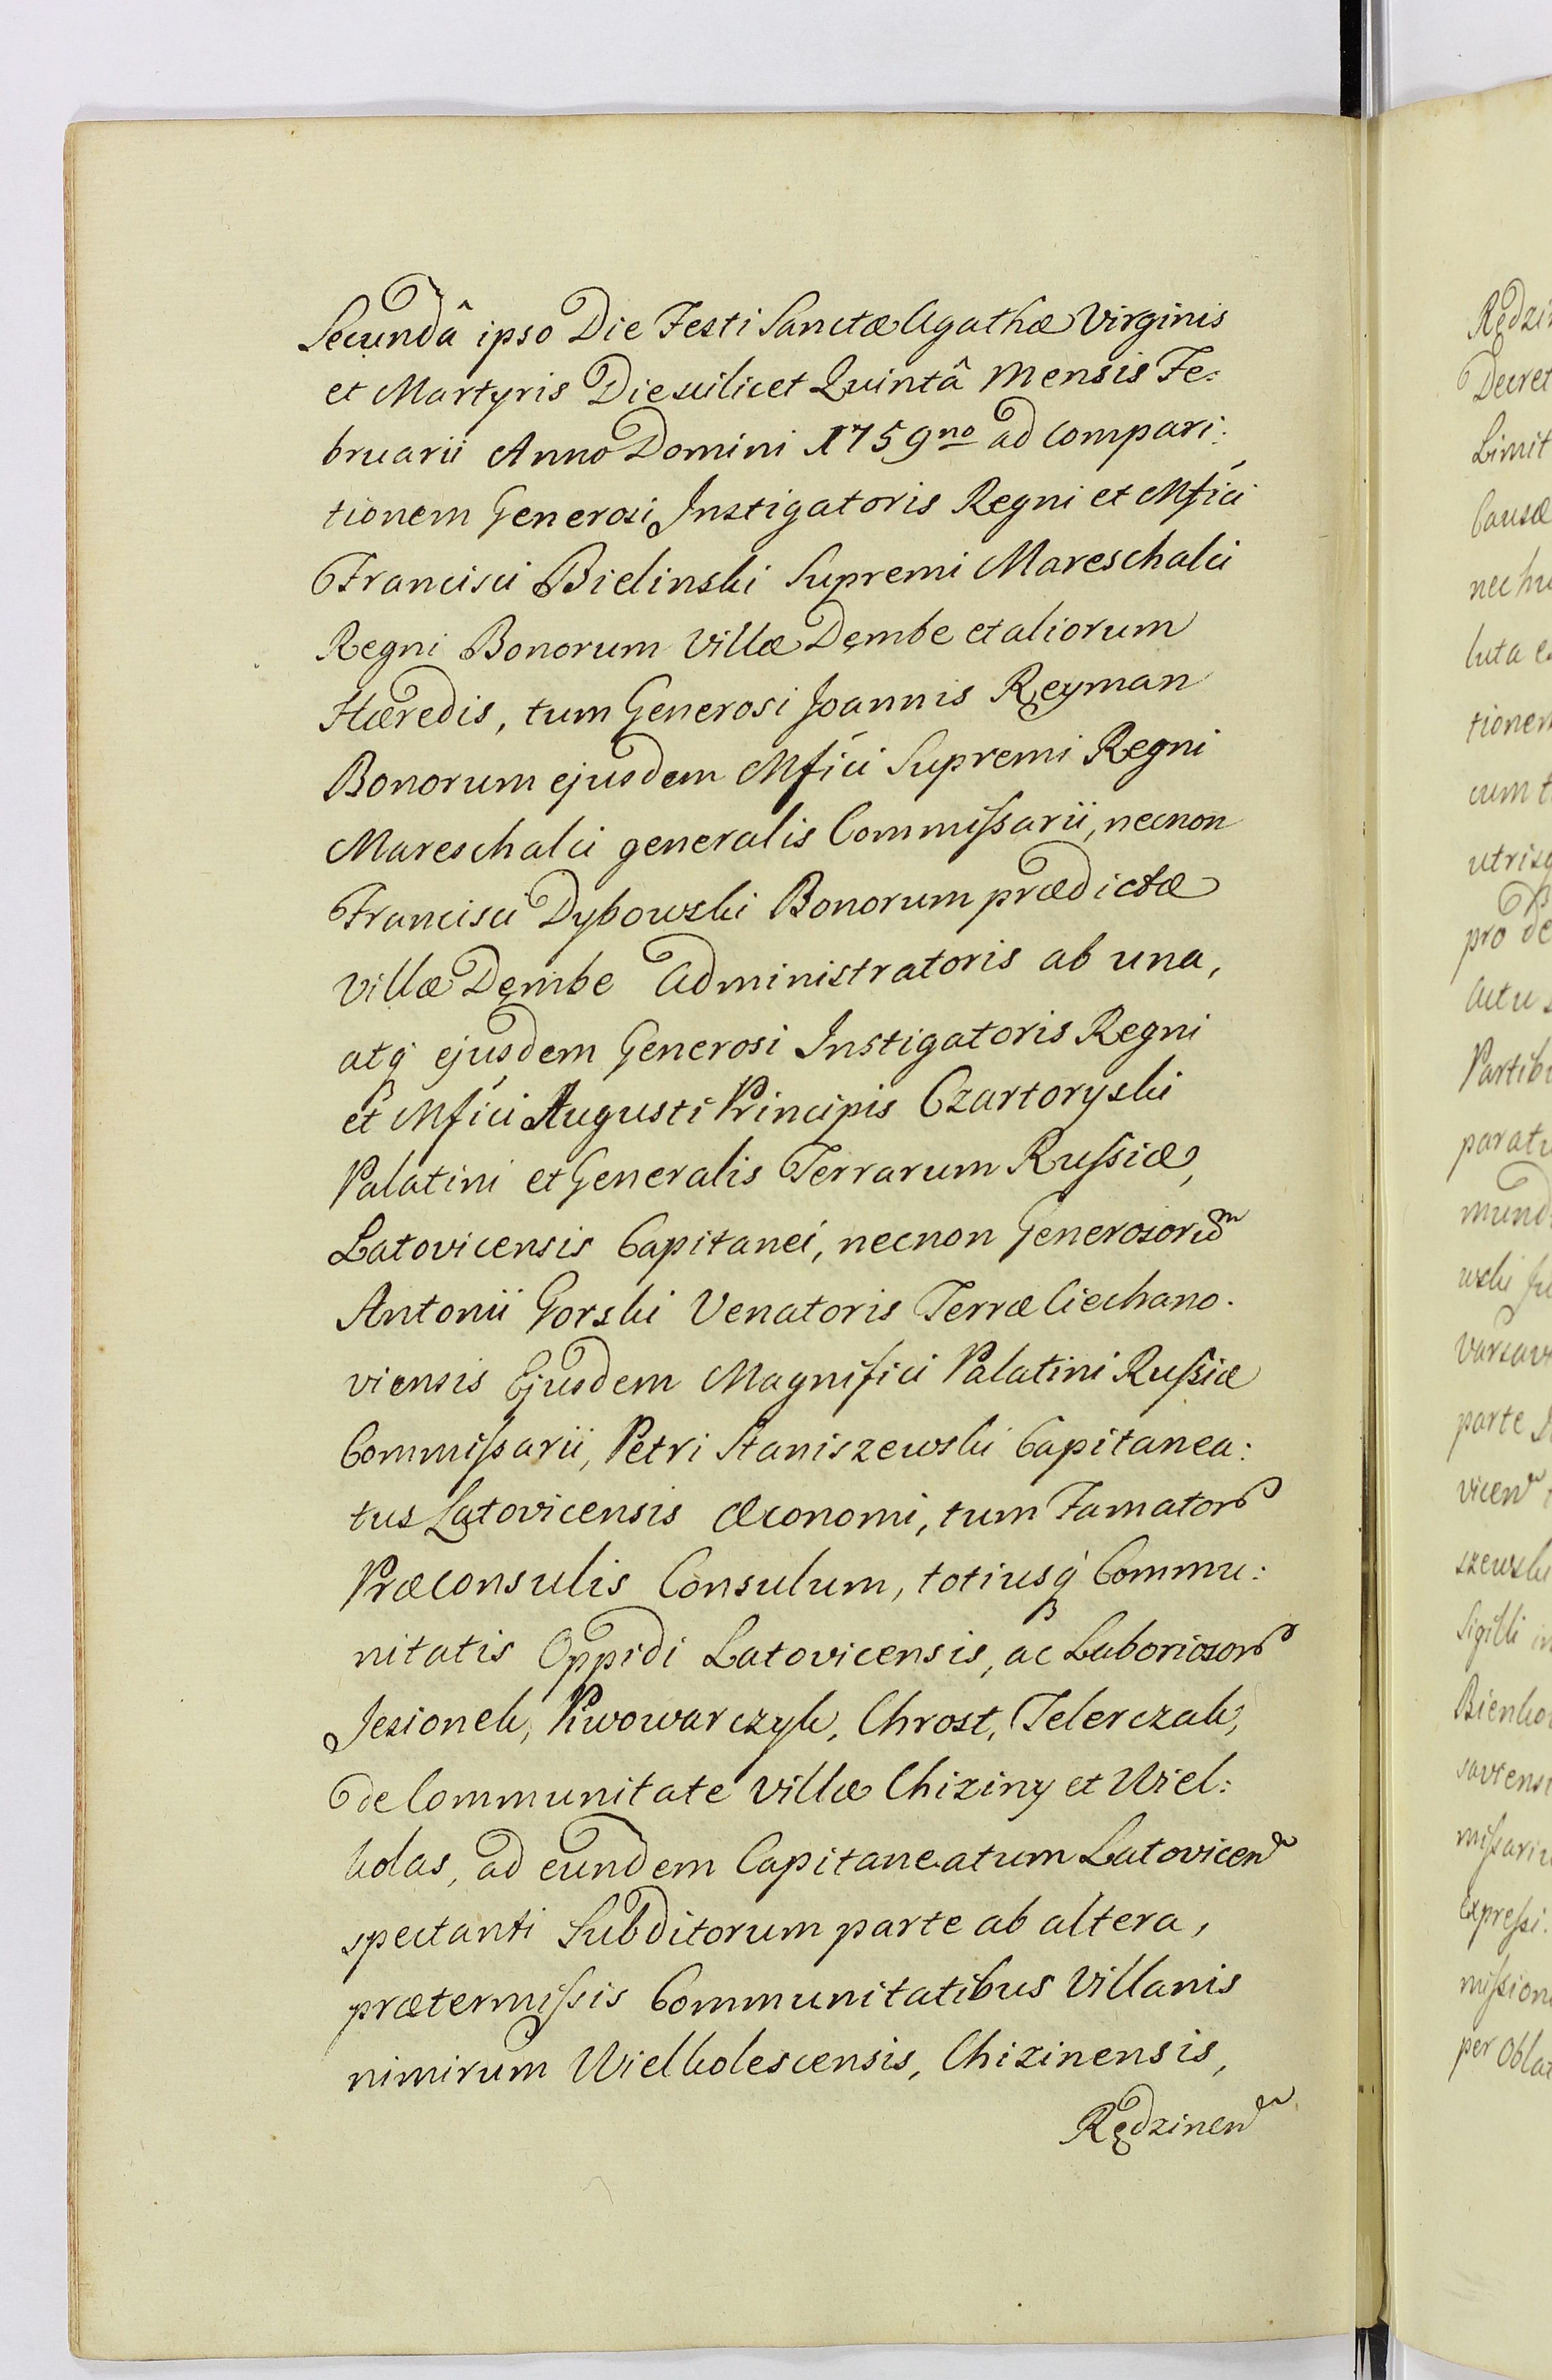 Secundâ ipso Die Festi Sanctæ Agathæ Virginis
et Martyris Die scilicet Quintâ Mensis Fe:
bruarii Anno Domini 1759no ad compari:
tionem Generosi Instigatoris Regni et Mfici
Francisci Bielinski Supremi Mareschalci
Regni Bonorum Villæ Dęmbe et aliorum
Hæredis, tum Generosi Joannis Reyman
Bonorum ejusdem Mfici Supremi Regni
Mareschalci generalis Commissarii, necnon
Francisci Dybowski Bonorum prædictæ
Villæ Dęmbe Administratoris ab una,
atq ejusdem Generosi Instigatoris Regni
et Mfici Augusti Principis Czartoryski
Palatini et Generalis Terrarum Russiæ,
Latovicensis Capitanei, necnon Generosorum
Antonii Gorski Venatoris Terræ Ciechano.
viensis Ejusdem Magnifici Palatini Russiæ
Commissarii, Petri Staniszewski Capitanea:
tus Latovicensis Œconomi, tum Famator
Præconsulis Consulum, totiusq Commu:
nitatis Oppidi Latovicensis, ac Laboriosor
Jesionek, Piwowarczyk, Chrost, Telerczak,
de Communitate Villæ Chiziny et Wiel:
kolas, ad eundem Capitaneatum Latovicen
spectanti Subditorum parte ab altera,
prætermissis Communitatibus Villanis
nimirum Wielkolescensis, Chizinensis,
Rędzinen
Rędzin
Decret
Limit
Causæ
nec hu
luta e
tionem
cum t
utrisq
pro de
Actu s
Partib
paratu
mund
wski Ju
Varsavi
parte
vicen
szewski
Sigilli in
Bienko
saviensi
missariu
expressi.
mission
per Oblat